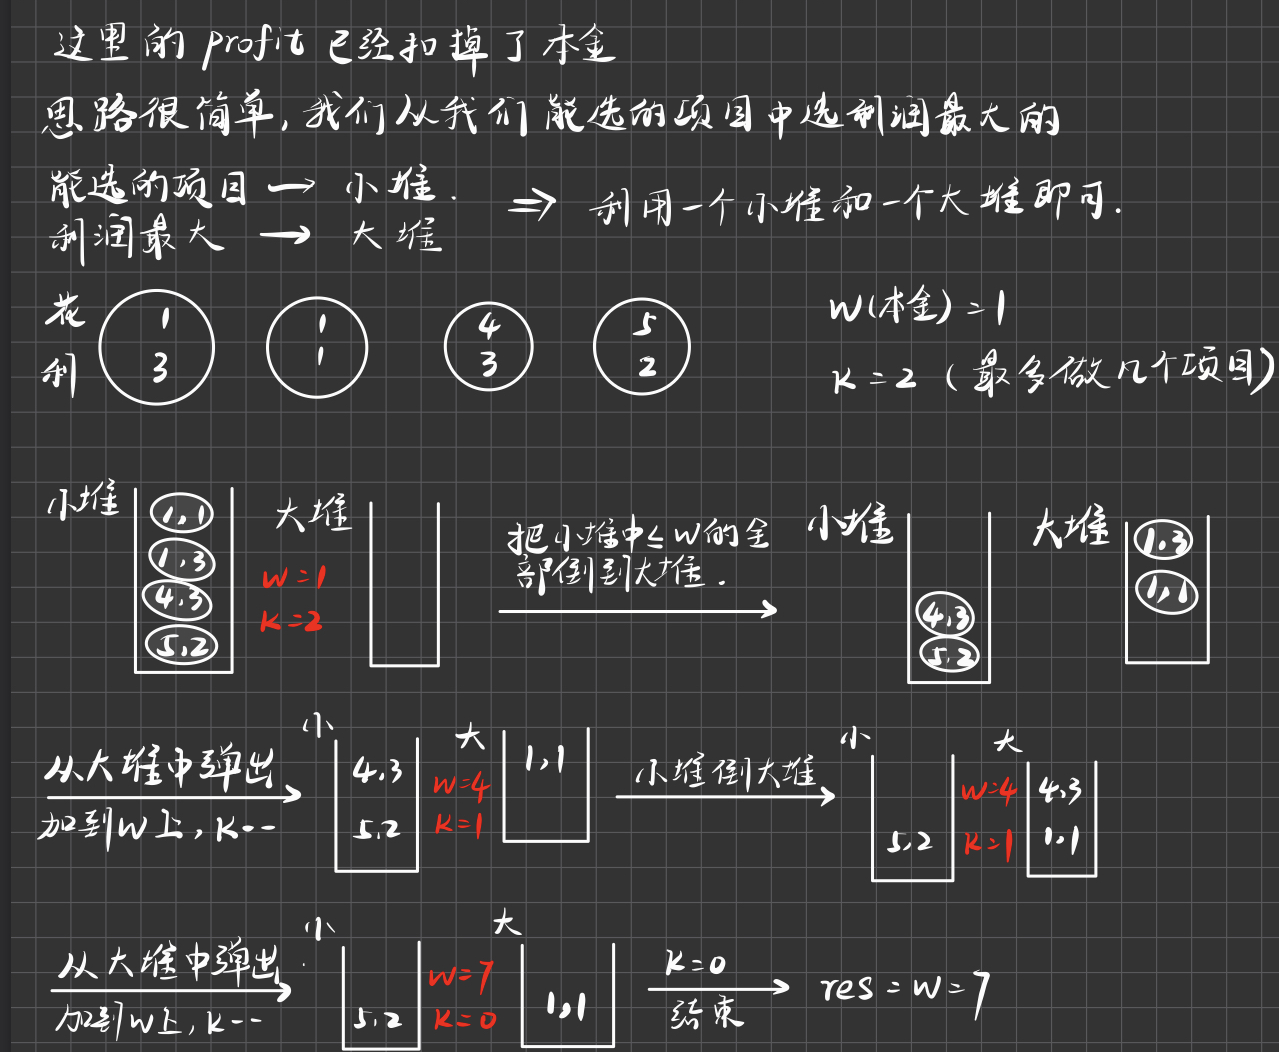 这里的 profit 已经扣掉了本金
思路很简单,我们从我们能选的项目中选利润最大的
能选的项目 → 小堆.
利润最大 → 大堆
⇒ 利用一个小堆和一个大堆即可.
花 1 1 4 5
利 3 1 3 2
W(本金)=1
K=2 (最多做几个项目)
小堆
1,1
1,3
4,3
5,2
大堆
W=1
K=2
把小堆中≤W的全
部倒到大堆.
小堆
4,3
5,2
大堆
1,3
1,1
从大堆中弹出
加到W上,K--
小
4,3
5,2
W=4
K=1
大
1,1
小堆倒大堆
小
5,2
W=4
K=1
大
4,3
1,1
从大堆中弹出
加到W上,K--
小
5,2
W=7
K=0
大
1,1
K=0
结束
res=W=7